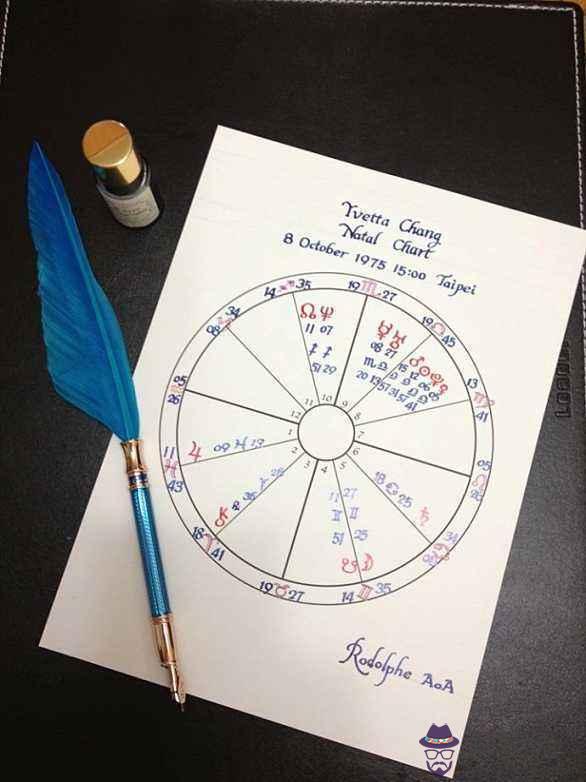 Yvetta Chang
Natal Chart
8 October 1975 15:00 Taipei
14 ♐ 35
19 ♏ 27
19 ♎ 45
☊ ♆
11 07
♐ ♐
51 29
13 ♍ 41
05 ♌
11 ♓ 43
♃ 09 ♓ 13
18 ♋ 25 ♄
11 27
♊ ♊
51 25
☋ ☽
18 ♈ 41
19 ♉ 27
14 ♊ 35
1
2
3
4
5
6
7
8
9
10
11
12
Rodolphe AoA